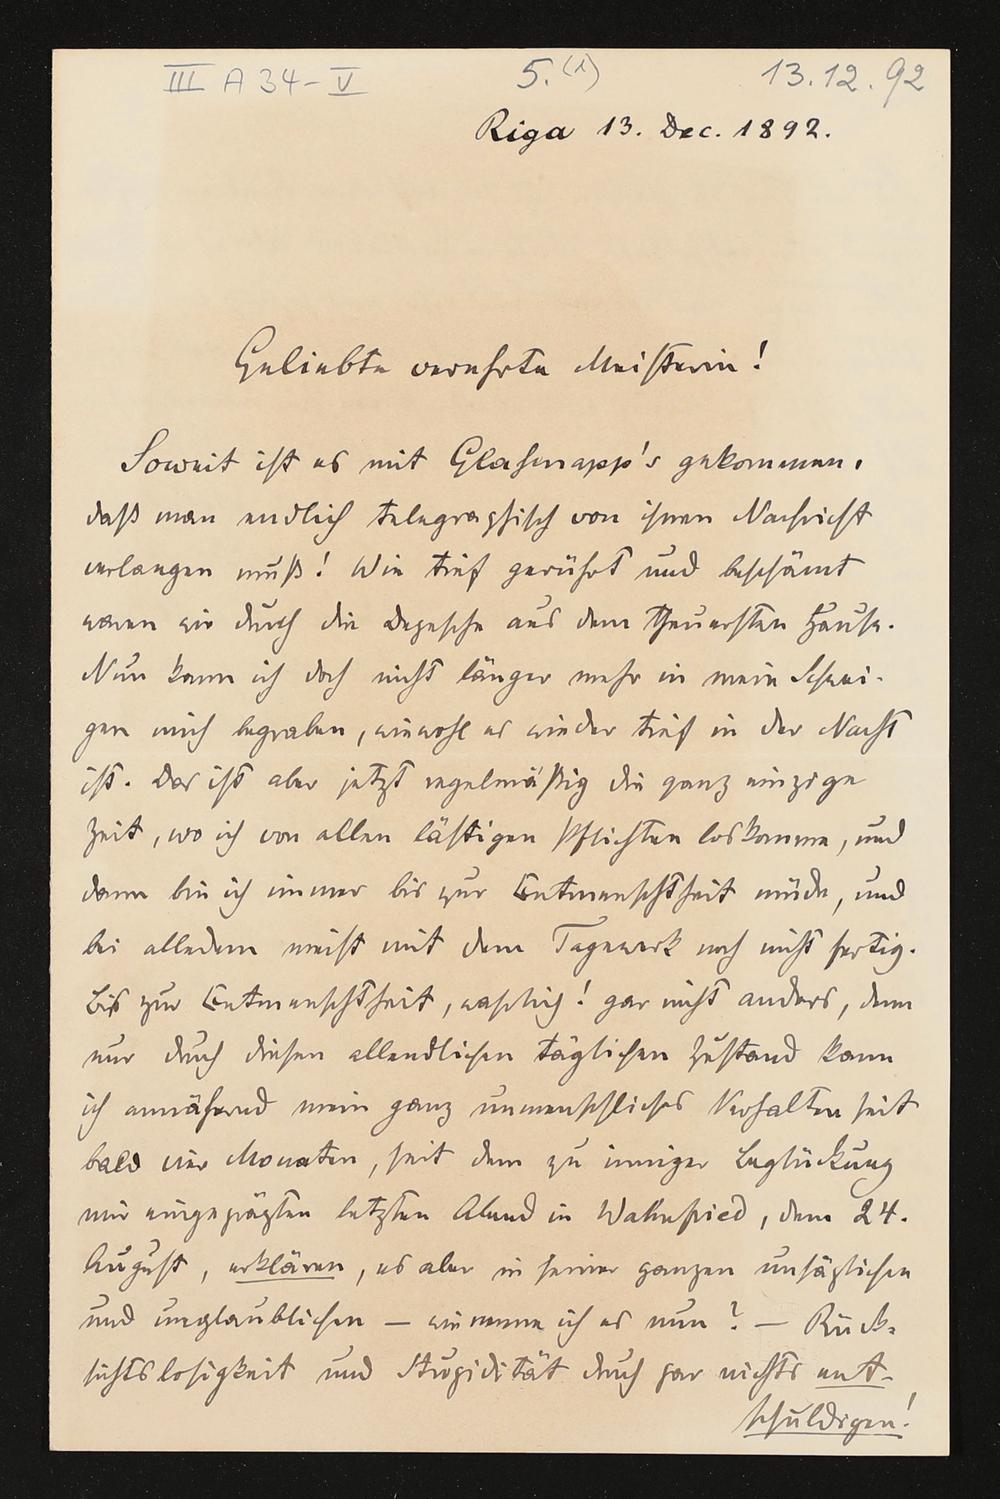 III A 34-V 5.(1) 13.12.92
Riga 13. Dec. 1892.
Geliebte verehrte Meisterin!
Soweit ist es mit Glasenapp's gekommen,
daß man endlich telegraphisch von ihnen Nachricht
verlangen muß! Wie tief gerührt und beschämt
waren wir durch die Depesche aus dem theuersten Hause.
Nun kann ich doch nicht länger mehr in mein Schwei-
gen mich begraben, wiewohl es wieder tief in der Nacht
ist. Das ist aber jetzt regelmäßig die ganz einzige
Zeit, wo ich von allen lästigen Pflichten loskomme, und
dann bin ich immer bis zur Entmenschtheit müde, und
bei alledem meist mit dem Tagewerk noch nicht fertig.
Bis zur Entmenschtheit, wahrlich! gar nicht anders, denn
nur durch diesen allendlichen täglichen Zustand kann
ich annähernd mein ganz unmenschliches Verhalten seit
bald vier Monaten, seit dem zu inniger Beglückung
mir eingeprägten letzten Abend in Wahnfried, dem 24.
August, erklären, es aber in seiner ganzen unsäglichen
und unglaublichen – wie nenne ich es nun? – Rück-
sichtslosigkeit und Stupidität durch gar nichts ent-
schuldigen!